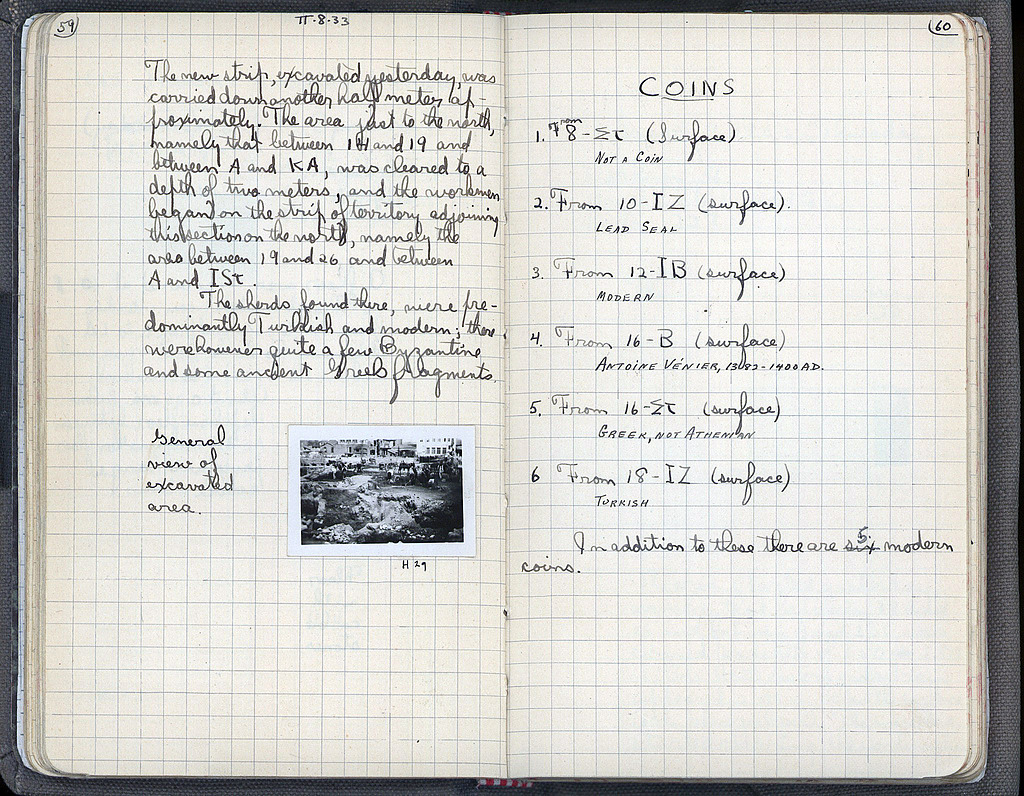 59
ΠΓ·8·33
The new strip, excavated yesterday, was
carried down another half meter ap-
proximately. The area just to the north,
namely that between 14 and 19 and
between A and KA, was cleared to a
depth of two meters, and the workmen
began on the strip of territory adjoining
this section on the north, namely the
area between 19 and 26 and between
A and IΣτ.
The sherds found there, were pre-
dominantly Turkish and modern; there
were however quite a few Byzantine
and some ancient Greek fragments.
General
view of
excavated
area.
H 29
60
COINS
1. From 8-Στ (Surface)
NOT A COIN
2. From 10-IZ (surface).
LEAD SEAL
3. From 12-IB (surface)
MODERN
4. From 16-B (surface)
ANTOINE VÉNIER, 1382-1400 AD.
5. From 16-Στ (surface)
GREEK, NOT ATHENIAN
6 From 18-IZ (surface)
TURKISH
In addition to these there are six 5 modern
coins.